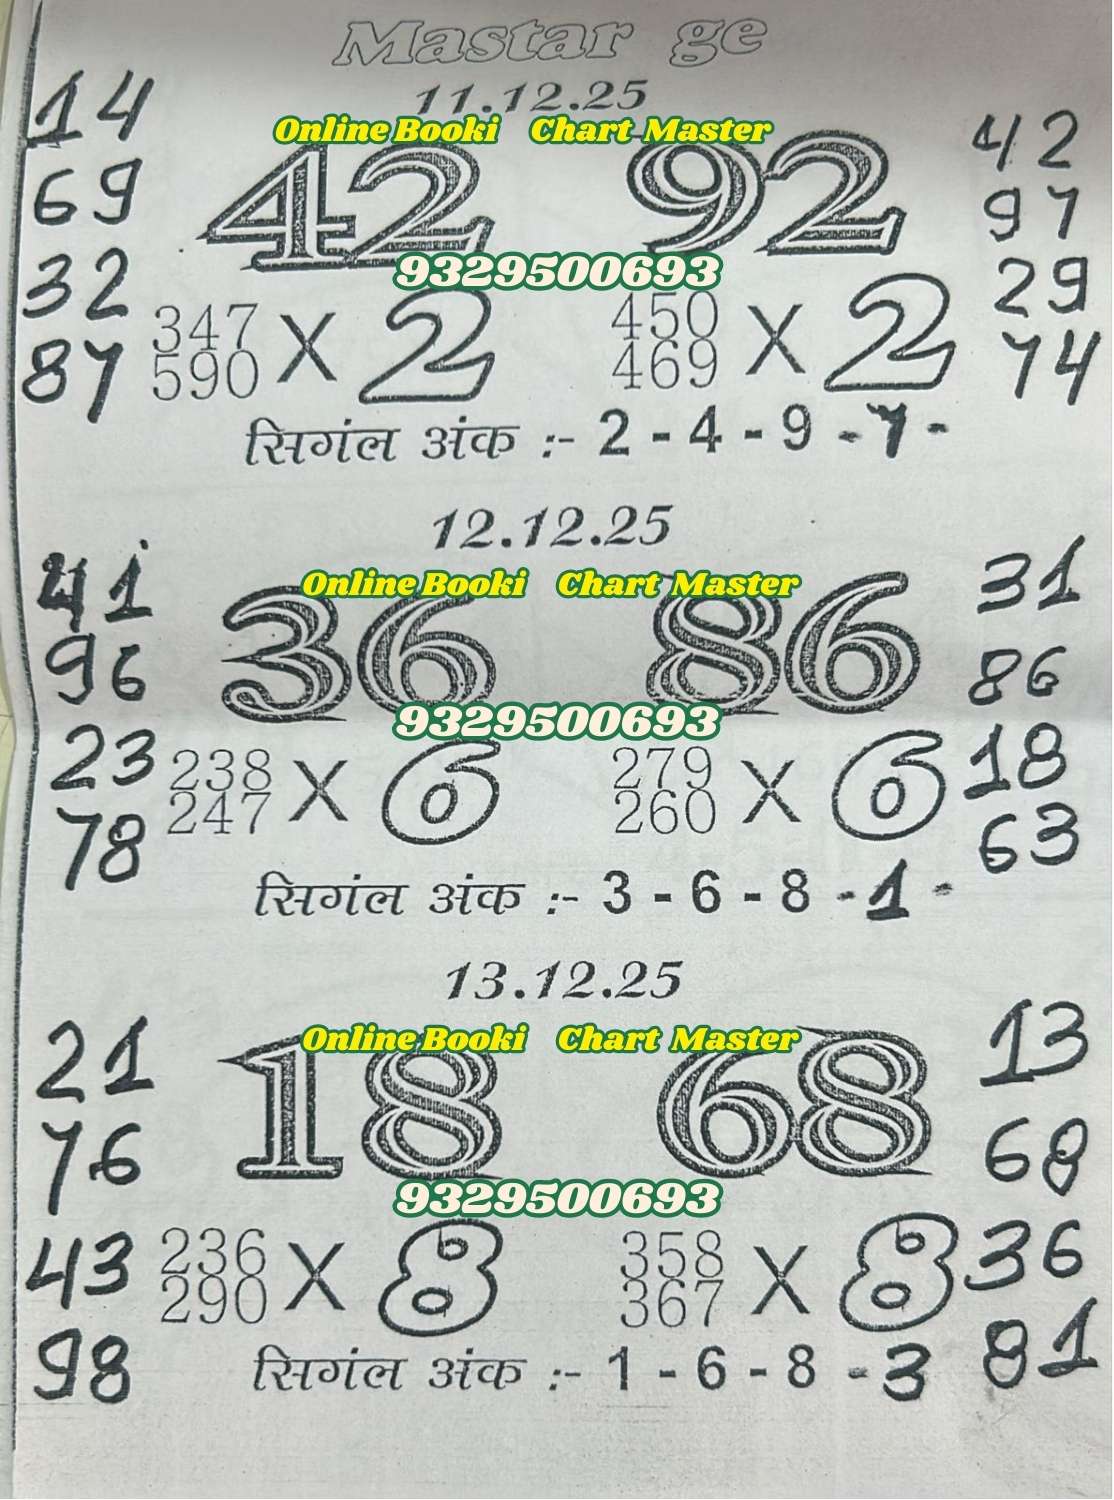 Mastar ge
11.12.25
Online Booki Chart Master
14
69
32
87
42 92
42
97
29
74
9329500693
347
590 X 2
450
469 X 2
सिगंल अंक :- 2 - 4 - 9 - 7 -
12.12.25
Online Booki Chart Master
41
96
23
78
36 86
31
86
18
63
9329500693
238
247 X 6
279
260 X 6
सिगंल अंक :- 3 - 6 - 8 - 1 -
13.12.25
Online Booki Chart Master
21
76
43
98
18 68
13
68
36
81
9329500693
236
290 X 8
358
367 X 8
सिगंल अंक :- 1 - 6 - 8 - 3